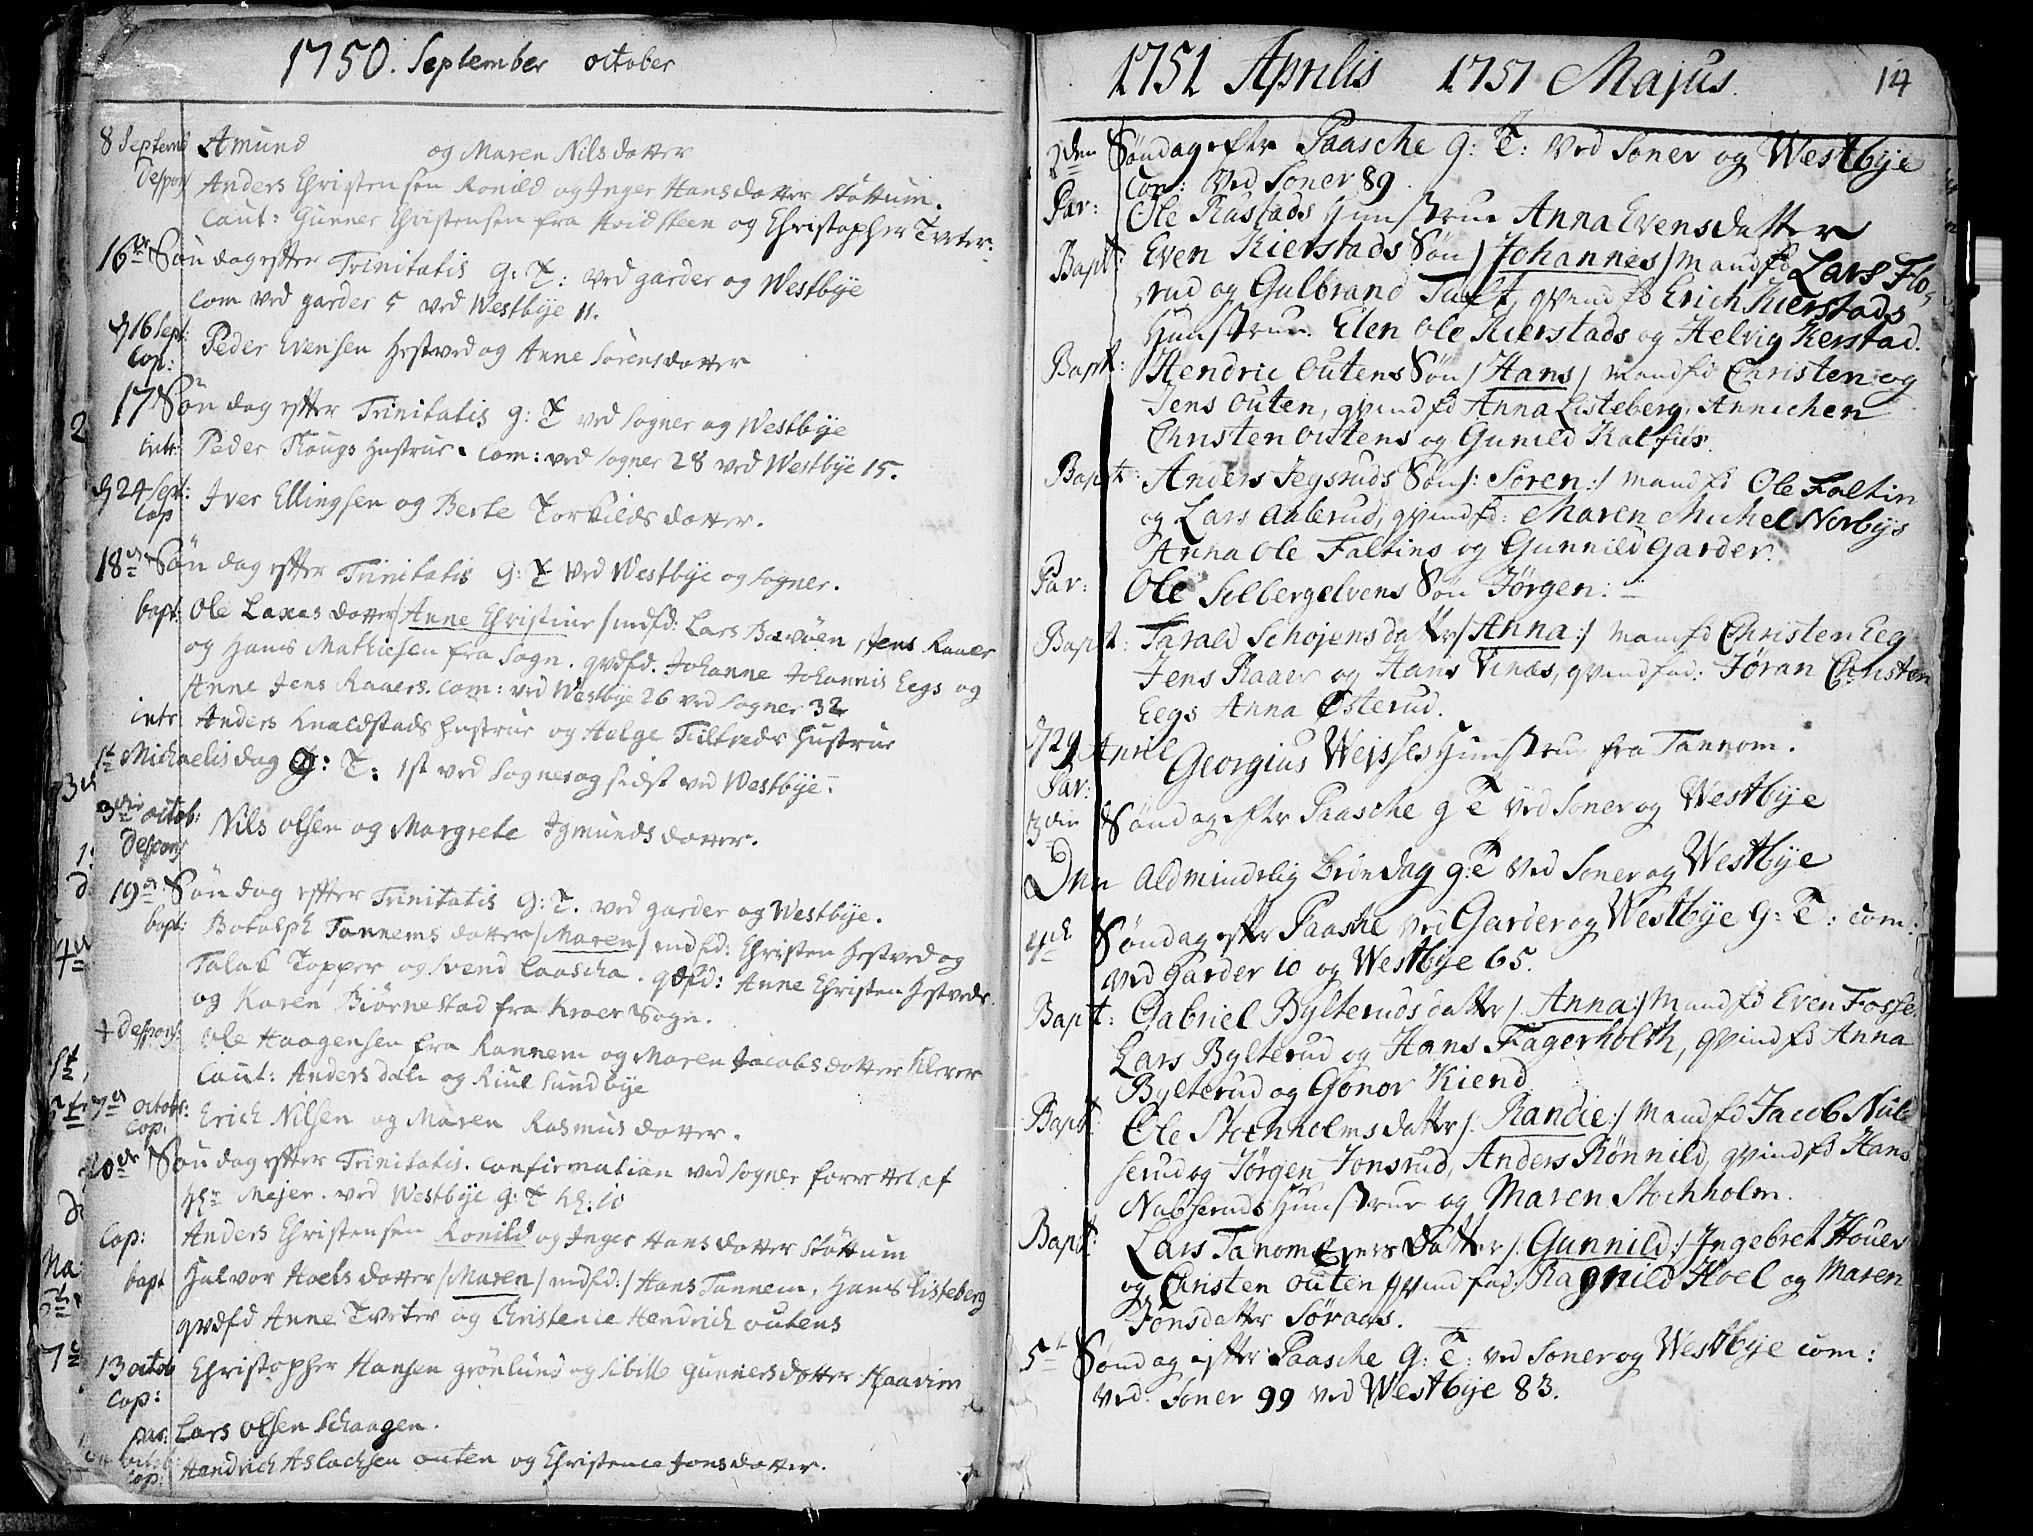 1750. September october
8 Septemb Amund og Maren Nilsdatter
Despons Anders Christensen Ronild og Inger Hansdatter Støttum.
Caut: Gunner Christensen fra Hvidsteen og Christopher Tveter.
16de Søndag efter Trinitatis G: T: ved garder og Westbÿe
Com ved garder 5 ved Westbÿe 11.
d 16 Sept: Cop: Peder Evensen Hestved og Anne Sørensdatter
17 Søndag efter Trinitatis G: T ved Sogner og Westbÿe
intr: Peder Krougs Hustrue. Com: ved Sogner 28 ved Westbÿe 15.
d 24 Sept: Cop Iver Ellingsen og Berte Torkildsdatter.
18de Søndag efter Trinitatis G: T ved Westbÿe og Sogner.
bapt: Ole Laxas datter / Anne Christine / mdfd: Lars Bævøen, Jens Raaer
og Hans Mathiesen fra Sogn. qvdfd. Johanne Johannis Eegs og
Anne Jens Raaers. Com: ved Westbÿe 26 ved Sogner 32
intr Anders Knaldstads Hustrue og Helge Hustrue
St Michaelis dag G: T: 1st ved Sogner og sidst ved Westbÿe.
3die octob: Despons Nils Olsen og Margrete Igmundsdatter.
19de Søndag efter Trinitatis G: T. ved garder og Westbÿe.
bapt: Botolph Tannems datter / Maren / mdfd: Christen Hestved og
Talak Topper og Svend Laascha. qvdfd: Anne Christen Hestveds
og Karen Biørnestad fra Kroer Sogn.
Despons: Ole Haagensen fra Rannem og Maren Jacobsdatter Klever
Caut: Anders dale og Riul Sundbÿe
7de octobr: Cop: Erich Nilsen og Maren Rasmusdatter.
20de Søndag efter Trinitatis. Confirmation ved Sogner forrettet af
Hr Mejer. ved Westbÿe G: T kl: 10
Cop: Anders Christensen Ronild og Inger Hansdatter Støttum
bapt Halvor Hoels datter / Maren / mdfd: / Hans Tannem, Hans Listeberg
qvdfd Anne Tveter og Christence Hendrich outens
13 octob Cop: Christopher Hansen grønlund og Sibille Gunnersdatter Haavim
par: Lars Olsen Skaagen.
Cop: Hendrich Aslachsen outen og Christence Jonsdatter.
1751 Aprilis 1751 Majus. 14
2den Søndag efter Paasche G: T: Ved Soner og Westbÿe
Com: Ved Soner 89.
Par: Ole Rustads Hunstrue Anna Evensdatter
Bapt: Even Kierstads Søn / Johannes / mandfd Lars Flo-
srud og Gulbrand Taft, qvindfd Erich Kierstads
Hunstrue. Elen Ole Kierstads og Helvig Kerstad.
Bapt: Hendric Outens Søn / Hans / mandfd Christen og
Jens Outen, qvindfd Anna Listeberg, Annichen
Christen Outens og Gunild Kalfüs.
Bapt: Anders Jegsruds Søn /: Søren :/ mandfd Ole Faltin
og Lars Aalerud, qvindfd: Maren Michel Norbÿs
Anna Ole Faltins og Gunnild Garder.
Par: Ole Solbergelvens Søn Jørgen:
Bapt: Tarald Schojens datter / Anna :/ mandfd Christen Eeg
Jens Raaer og Hans Vinæs, qvindfad: Jøran Christen
Eegs Anna Østerud.
d 29 April Georgius Weisses Hunstrue fra Tannom.
Par:
3die Søndag efter Paasche g T ved Soner og Westbÿe
Den Aldmindelig Bededag g: T ved Soner og Westbÿe
4de Søndag efter Paasche ved Garder og Westbÿe G: T: com:
ved Garder 10 og Westbÿe 65.
Bapt: Gabriel Bÿlteruds datter / Anna :/ Mandfd Even Fosse
Lars Bÿlterud og Hans Fagerholth, qvindfd Anna
Bÿlterud og Gonor Kiend
Bapt: Ole Stochholms datter /: Randie :/ Mandfd Jacob Nüb
serud og Jørgen Jonsrud, Anders Rønnild, qvindfd Hans
Nubseruds Hunstrue og Maren Stochholm.
Bapt: Lars Tanom Datter /: Gunnild :/ Ingebret Houer
og Christen outen qvindfad: Ragnild Hoel og Maren
Jonsdatter Søraas.
5te Søndag efter Paasche G: T: ved Soner og Westbÿe com:
ved Soner 99 ved Westbÿe 83.